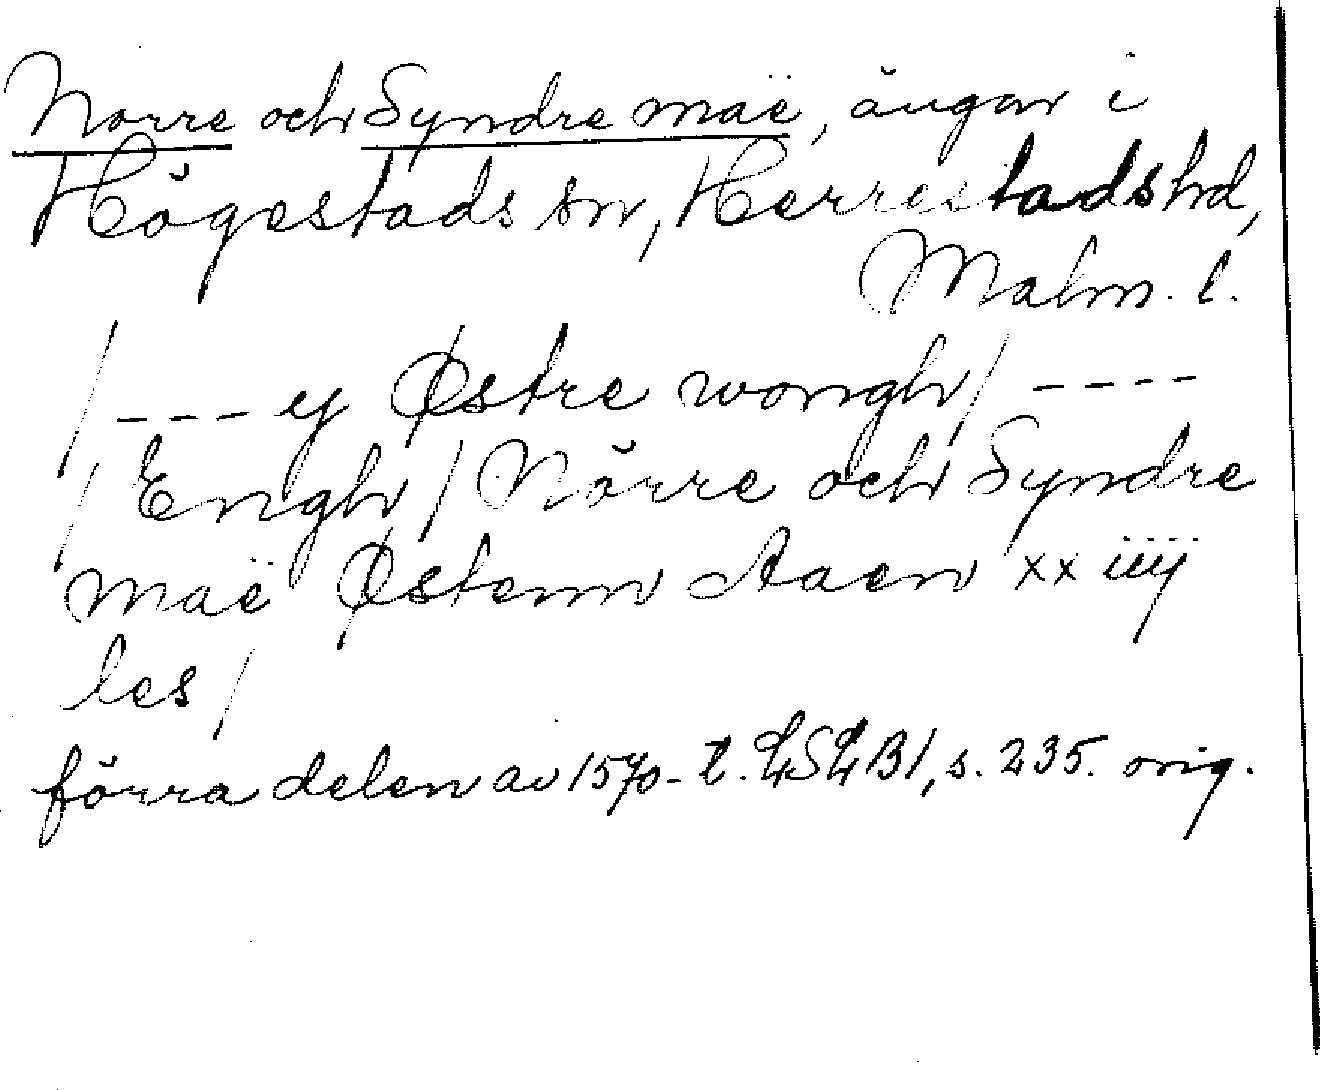 Norre och Syndre maë, ängar i
Högestads sn, Herrestads hd,
Malm. l.
/ --- y Østre wongh / ----
/ Engh / Nörre och Syndre
maë Østenn Aaen xx iiij
les /
förra delen av 1570- t. LSLB1, s. 235. orig.